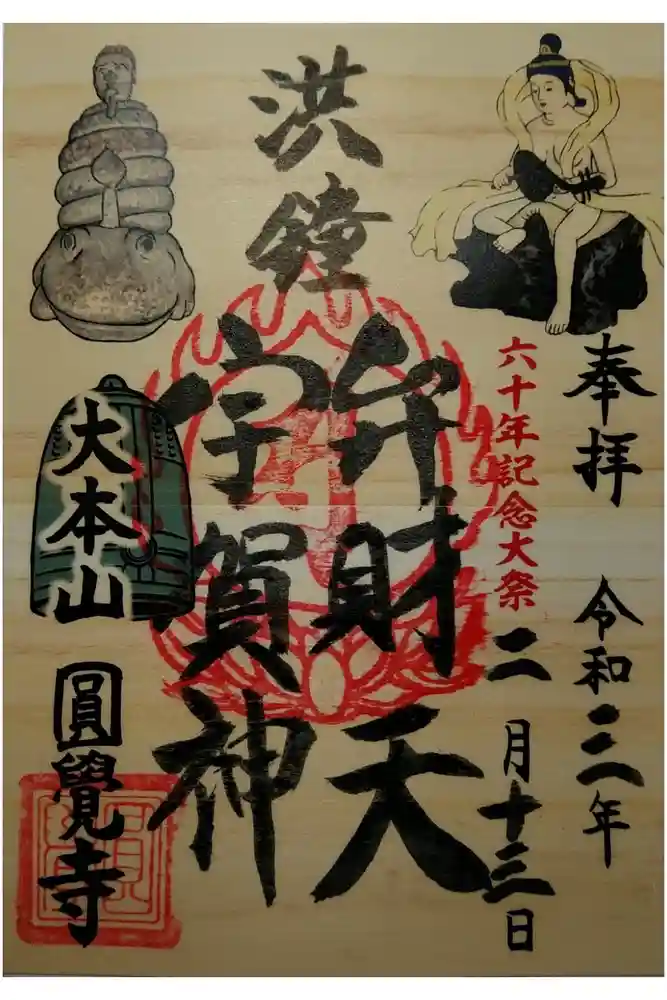 奉拝
令和三年
六十年記念大祭
二月十三日
洪鐘
弁財天
宇賀神
大本山
圓覺寺